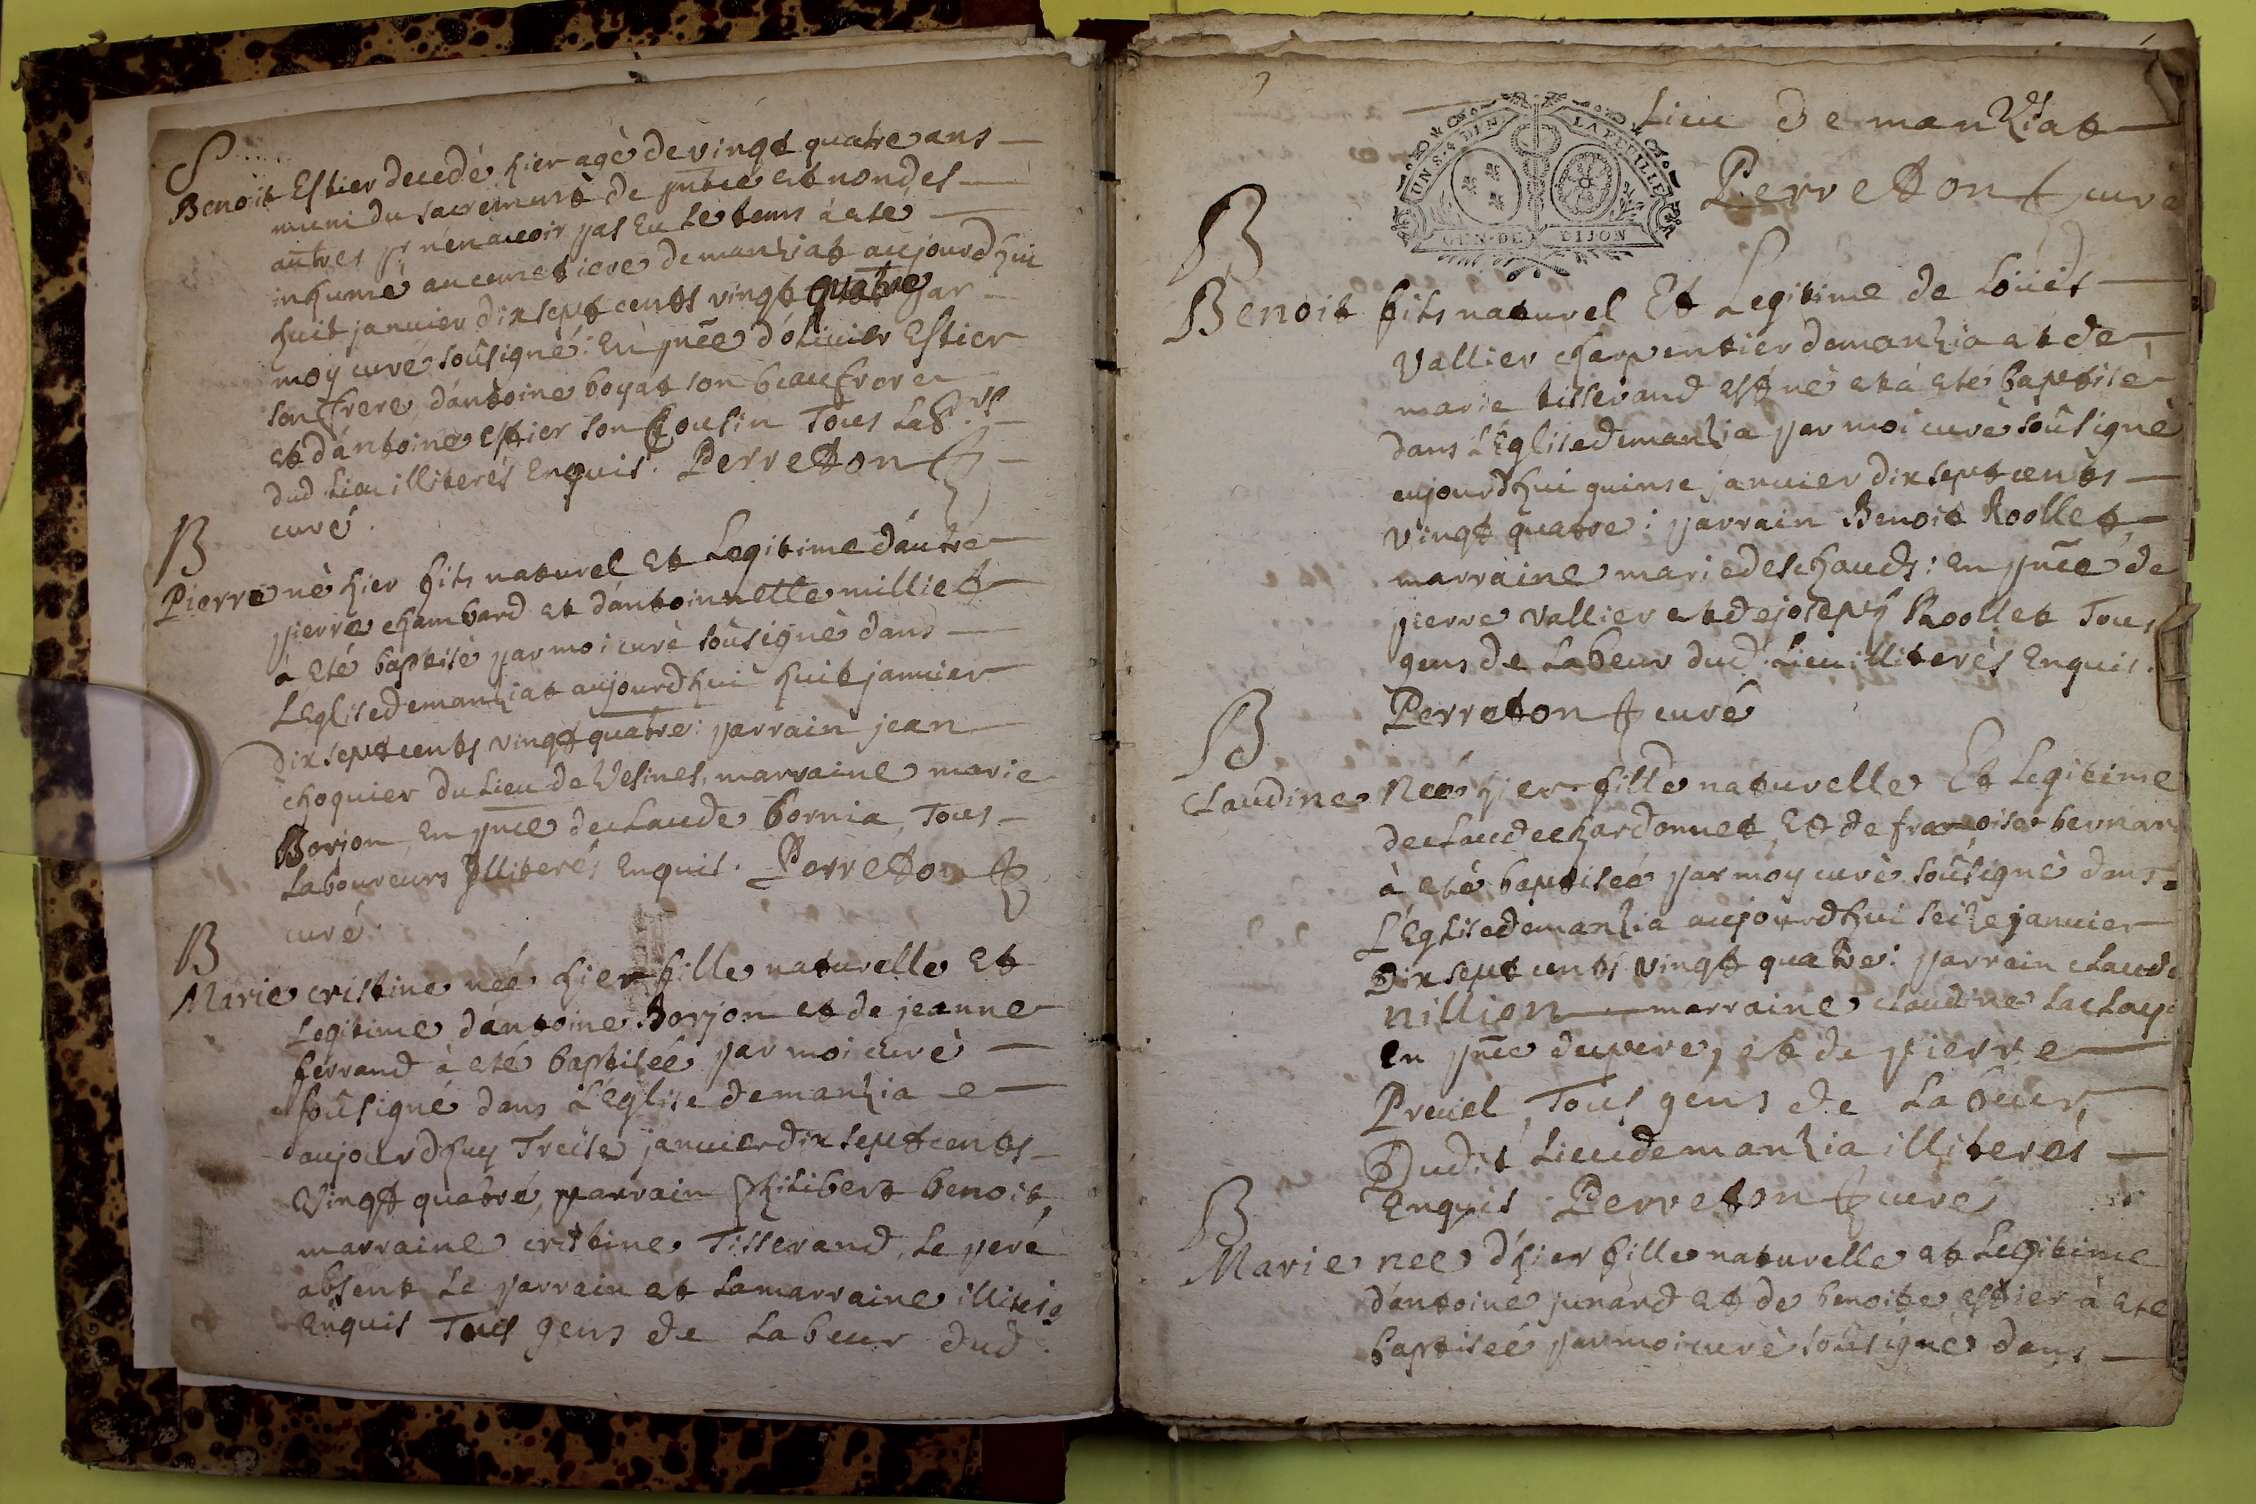 S
Benoit Estier decedé hier agè de vingt quatre ans
muni du sacrement de pntce et non des
autres pr n'en avoir pas eu le tems à ete
inhumé au cemetiere de manziat aujourdhui
huit janvier dix sept cents vingt quatre par
moy curé soûsigné: En pnce d'olivier Estier
son frere, d'antoine boyat son beaufrere
et d'antoine estier son Cousin Tous Labrs
dud. Lieu illiterés Enquis. Perreton
curé.
B
Pierre nè hier fils naturel et Legitime d'autre
pierre chambard et d'antoinnette milliet
à eté baptisé par moi curè soûsignè dans
L'Eglise de manziat aujourdhui huit janvier
dix sept cents vingt quatre: parrain jean
choquier du Lieu de Vesines, marraine marie
Borjon, En pnce de claude bornia, Tous
Laboureurs Illiterés Enquis. Perreton
curé.
B
Marie cristine née hier fille naturelle et
Legitime d'antoine Borjon et de jeanne
ferrand à eté baptisée par moi curè
soûsigné dans L'Eglise de manzia
aujourdhuy Treise janvier dix sept cents
Vingt quatré, parrain philibert benoit,
marraine cristine Tisserand, Le peré
absent Le parrain et La marraine
Enquis Tous gens de Labeur dud.
UN S. 4 DEN. LA FEUILLE
GEN. DE DIJON
Lieu de manziat
Perreton curé
B
Benoit fils naturel Et Legitime de Loüis
Vallier charpentier de manzia et de
marie tisserand est nè et à eté baptisè
dans L'Eglise de manzia par moi curè soûsignè
aujourdhui quinse janvier dix sept cents
vingt quatre: parrain Benoit Roollet,
marraine marie deschauds: en pnce de
pierre vallier et de joseph Roollet Tous
gens de Labeur dud. Lieu illiterès Enquis.
Perreton curé
B
Claudine Née hier fille naturelle Et Legitime
de claude chardonnet, Et de francoise bernar
à eté baptiseé par moy curè soûsignè dans
L'Eglise de manzia aujourdhui seize janvier
Dix sept cents vingt quatre: parrain claude
nillion marraine claudine
en pnce du pere, et de pierre
Preuel, Tous gens de Labeur,
Dudit Lieu de manzia illiteres
Enquis Perreton curé
B
Marie nee d'hier fille naturelle et Legitime
d'antoine junard et de benoite estier à ete
baptiseé par moi curè soûsigne dans